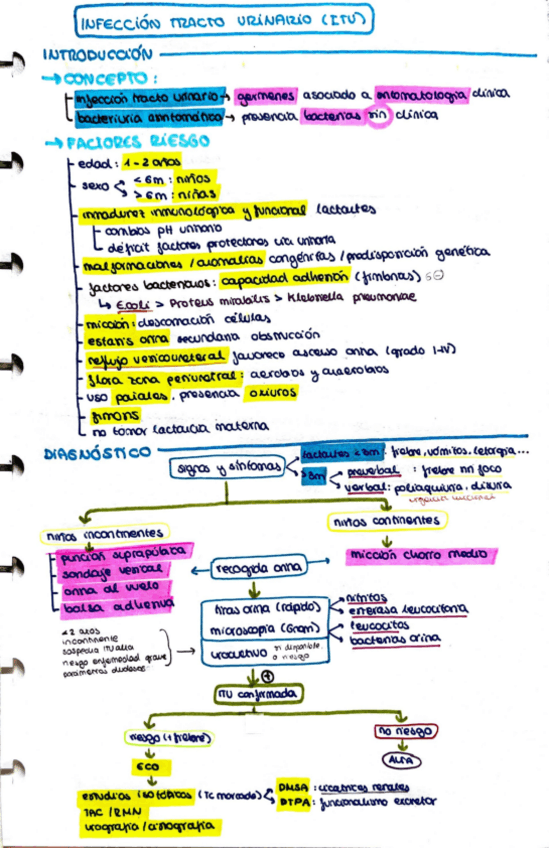 INFECCIÓN TRACTO URINARIO (ITU)
INTRODUCCIÓN
→ CONCEPTO:
infección tracto urinario → gérmenes asociado a sintomatología clínica
bacteriuria asintomática → presencia bacterias sin clínica
→ FACTORES RIESGO
edad: 1-2 años
sexo < 6m: niños
> 6m: niñas
inmadurez inmunológica y funcional lactantes
cambios pH urinario
déficit factores protectores vía urinaria
malformaciones / anomalías congénitas / predisposición genética
factores bacterianos: capacidad adhesión (fimbrias)
↳ E.coli > Proteus mirabilis > Klebsiella pneumoniae
micción: descamación células
estasis orina secundaria obstrucción
reflujo vesicoureteral favorece ascenso orina (grado I-IV)
flora zona periuretral: aerobios y anaerobios
uso pañales, presencia oxiuros
fimosis
no tomar lactancia materna
DIAGNÓSTICO
signos y síntomas
lactantes < 3m: fiebre, vómitos, letargia...
> 3m
preverbal: fiebre sin foco
verbal: polaquiuria, disuria
urgencia miccional
niños incontinentes
niños continentes
punción suprapúbica
sondaje vesical
orina al vuelo
bolsa adhesiva
recogida orina
micción chorro medio
tiras orina (rápido)
nitritos
esterasa leucocitaria
microscopía (Gram)
leucocitos
bacterias orina
urocultivo si disponible o riesgo
< 2 años
incontinente
sospecha ITU alta
riesgo enfermedad grave
parámetros dudosos
+
ITU confirmada
riesgo (+ fiebre)
no riesgo
ECO
ALTA
estudios isotópicos (Tc marcado)
DMSA: cicatrices renales
DTPA: funcionalismo excretor
TAC / RMN
urografía / cistografía